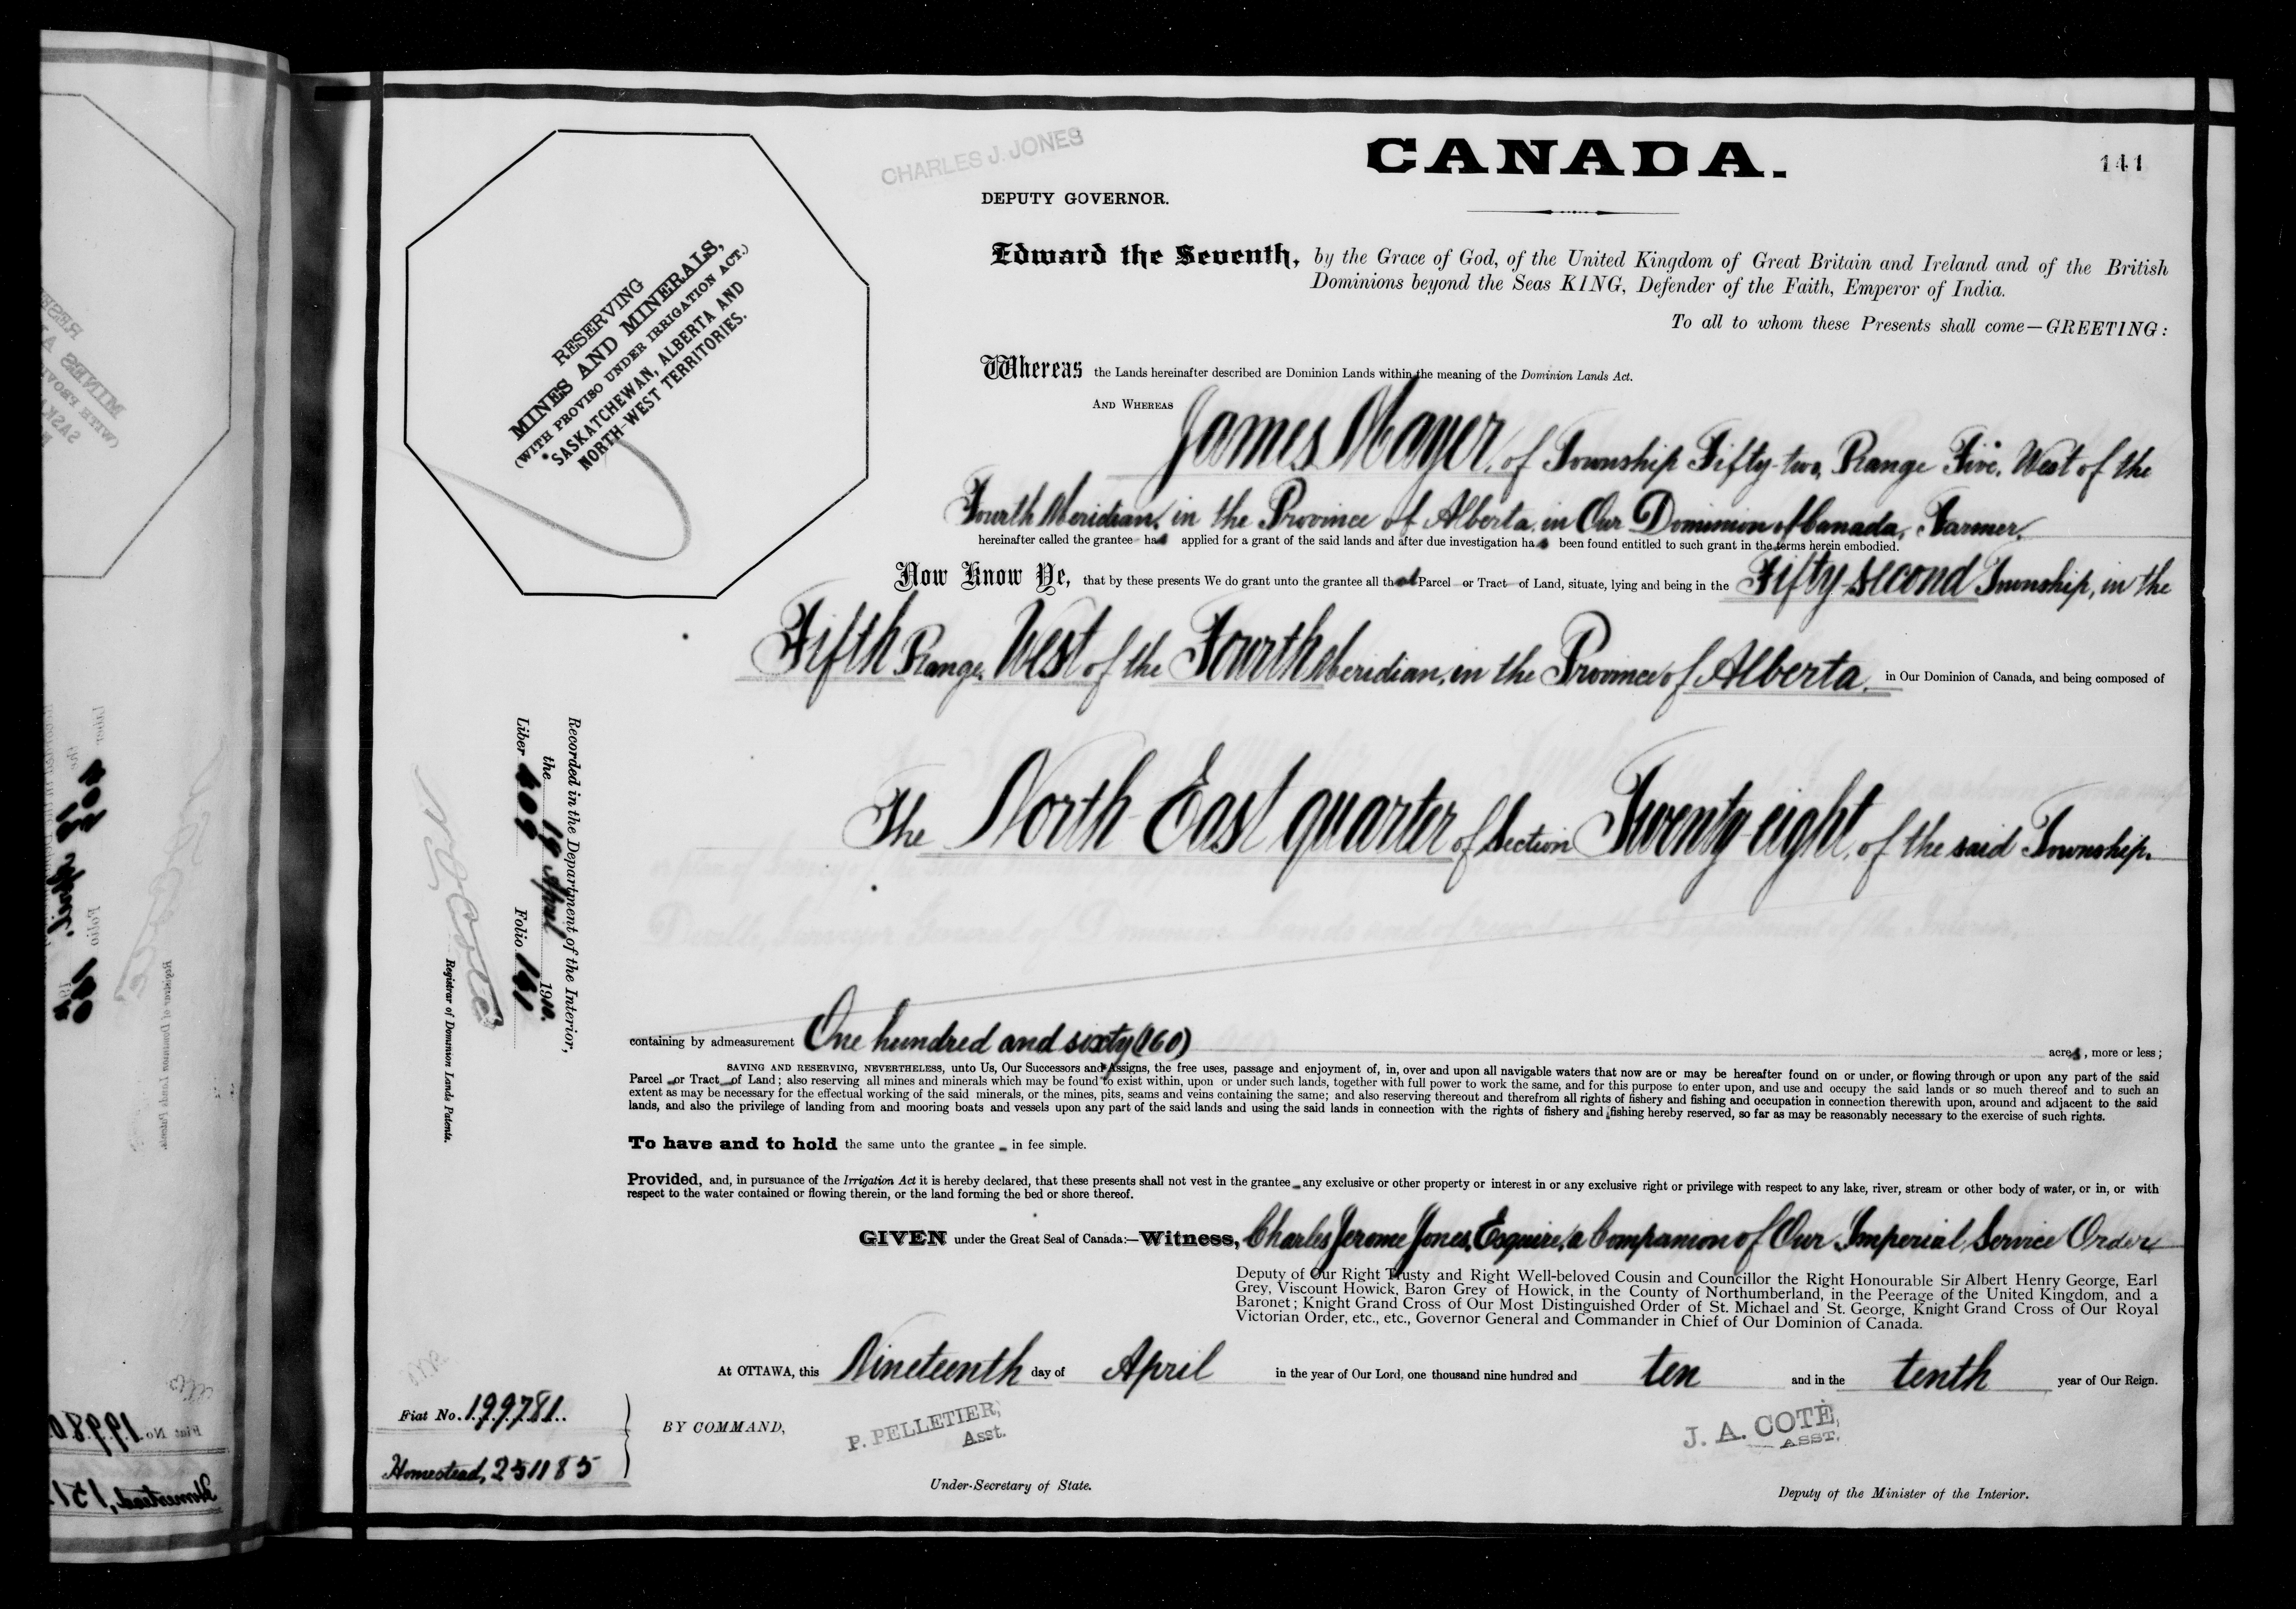 CHARLES J. JONES
CANADA.
141
DEPUTY GOVERNOR.
RESERVING
MINES AND MINERALS,
(WITH PROVISO UNDER IRRIGATION ACT.)
SASKATCHEWAN, ALBERTA AND
NORTH-WEST TERRITORIES.
Edward the Seventh, by the Grace of God, of the United Kingdom of Great Britain and Ireland and of the British
Dominions beyond the Seas KING, Defender of the Faith, Emperor of India.
To all to whom these Presents shall come—GREETING:
Whereas the Lands hereinafter described are Dominion Lands within the meaning of the Dominion Lands Act.
AND WHEREAS James Mayer, of Township Fifty-two, Range Five, West of the
Fourth Meridian, in the Province of Alberta, in Our Dominion of Canada, Farmer,
hereinafter called the grantee has applied for a grant of the said lands and after due investigation has been found entitled to such grant in the terms herein embodied.
Now Know Ye, that by these presents We do grant unto the grantee all that Parcel or Tract of Land, situate, lying and being in the Fifty-second Township, in the
Fifth Range, West of the Fourth Meridian, in the Province of Alberta, in Our Dominion of Canada, and being composed of
The North East quarter of Section Twenty-eight, of the said Township.
Recorded in the Department of the Interior,
the 19 April 1910.
Liber 409 Folio 141
N O Coste
Registrar of Dominion Lands Patents.
containing by admeasurement One hundred and sixty (160) acres, more or less;
SAVING AND RESERVING, NEVERTHELESS, unto Us, Our Successors and Assigns, the free uses, passage and enjoyment of, in, over and upon all navigable waters that now are or may be hereafter found on or under, or flowing through or upon any part of the said
Parcel or Tract of Land; also reserving all mines and minerals which may be found to exist within, upon or under such lands, together with full power to work the same, and for this purpose to enter upon, and use and occupy the said lands or so much thereof and to such an
extent as may be necessary for the effectual working of the said minerals, or the mines, pits, seams and veins containing the same; and also reserving thereout and therefrom all rights of fishery and fishing and occupation in connection therewith upon, around and adjacent to the said
lands, and also the privilege of landing from and mooring boats and vessels upon any part of the said lands and using the said lands in connection with the rights of fishery and fishing hereby reserved, so far as may be reasonably necessary to the exercise of such rights.
To have and to hold the same unto the grantee in fee simple.
Provided, and, in pursuance of the Irrigation Act it is hereby declared, that these presents shall not vest in the grantee any exclusive or other property or interest in or any exclusive right or privilege with respect to any lake, river, stream or other body of water, or in, or with
respect to the water contained or flowing therein, or the land forming the bed or shore thereof.
GIVEN under the Great Seal of Canada:—Witness, Charles Jerome Jones, Esquire, a Companion of Our Imperial Service Order
Deputy of Our Right Trusty and Right Well-beloved Cousin and Councillor the Right Honourable Sir Albert Henry George, Earl
Grey, Viscount Howick, Baron Grey of Howick, in the County of Northumberland, in the Peerage of the United Kingdom, and a
Baronet; Knight Grand Cross of Our Most Distinguished Order of St. Michael and St. George, Knight Grand Cross of Our Royal
Victorian Order, etc., etc., Governor General and Commander in Chief of Our Dominion of Canada.
At OTTAWA, this Nineteenth day of April in the year of Our Lord, one thousand nine hundred and ten and in the tenth year of Our Reign.
Fiat No. 199781.
Homestead, 251185
BY COMMAND,
P. PELLETIER,
Asst.
Under-Secretary of State.
J. A. COTÉ,
ASST.
Deputy of the Minister of the Interior.